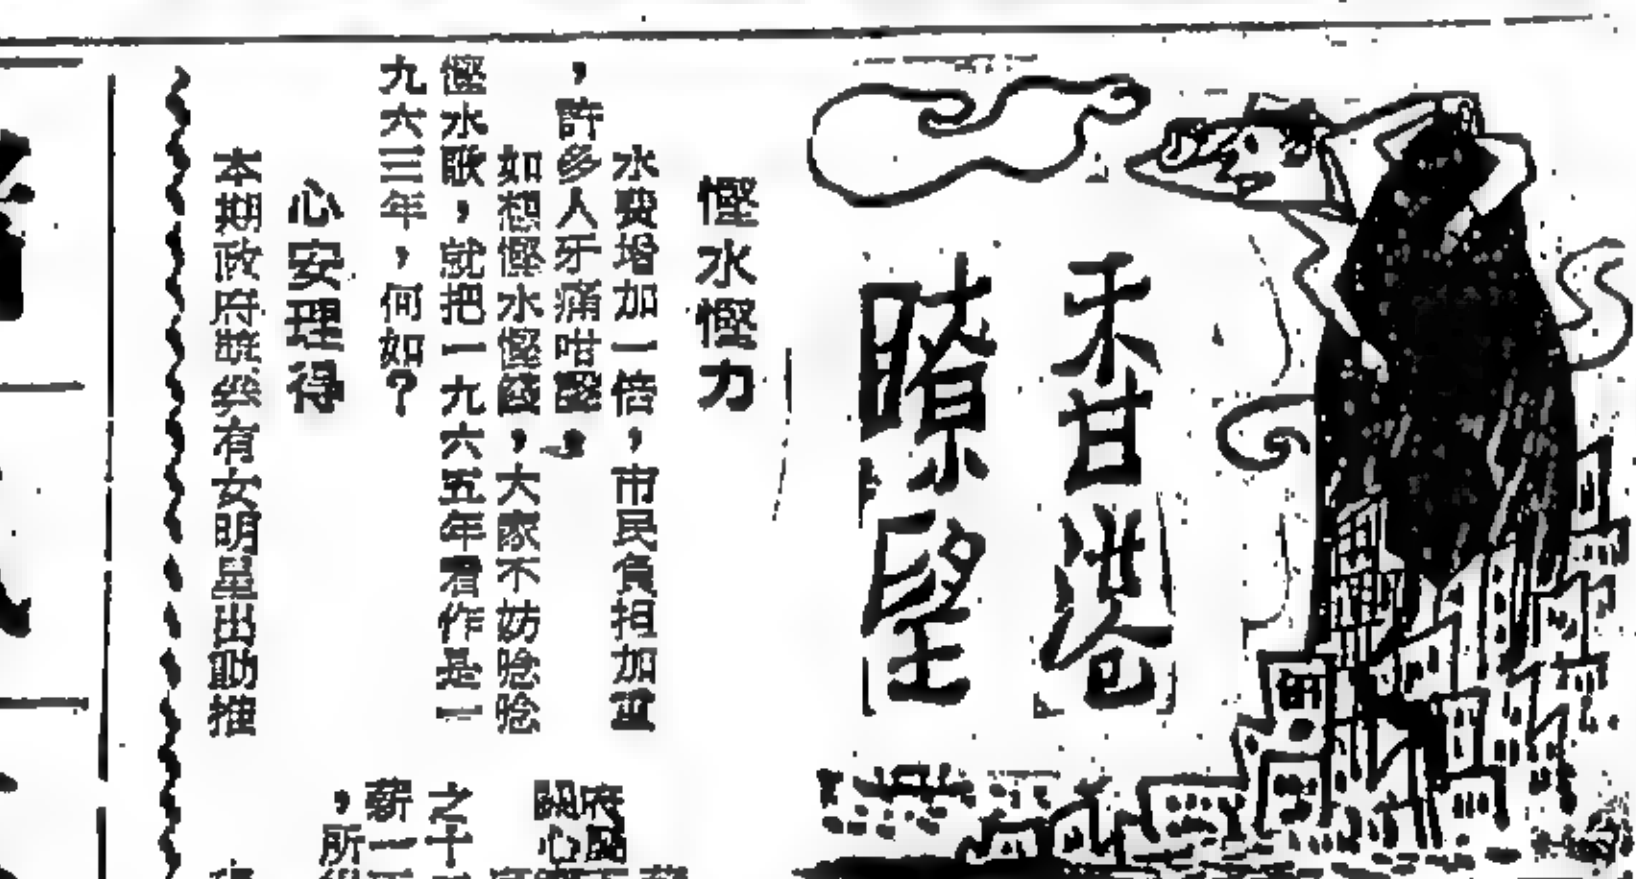 香港
瞭望
慳水慳力
水費增加一倍，市民負担加重
，許多人牙痛咁聲，
如想慳水慳錢，大家不妨唸唸
慳水歌，就把一九六五年看作是一
九六三年，何如？
心安理得
本期政府獎券有女明星出動推
府
關心
之十
薪一
，所